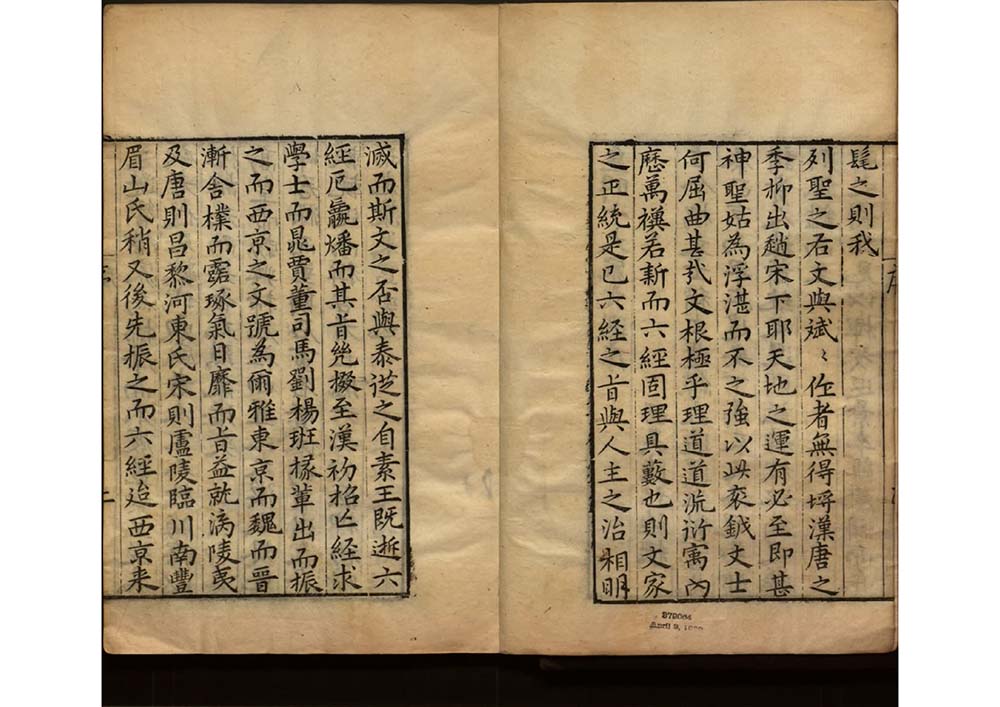 髦之則我
列聖之右文與斌〻作者無得埒漢唐之
季抑出趙宋下耶天地之運有必至即甚
神聖姑為浮湛而不之強以此衮鉞文士
何屈曲甚哉文根極乎理道道流衍寓內
歷萬禩若新而六經固理具藪也則文家
之正統是已六經之旨與人主之治相明
滅而斯文之否與泰從之自素王既逝六
經厄嬴燔而其旨幾掇至漢初招亡經求
學士而晁賈董司馬劉楊班掾軰出而振
之而西京之文號為爾雅東京而魏而晉
漸舍樸而露琢氣日靡而旨益就漓陵夷
及唐則昌黎河東氏宋則廬陵臨川南豐
眉山氏稍又後先振之而六經迨西京来
379064
April 9,